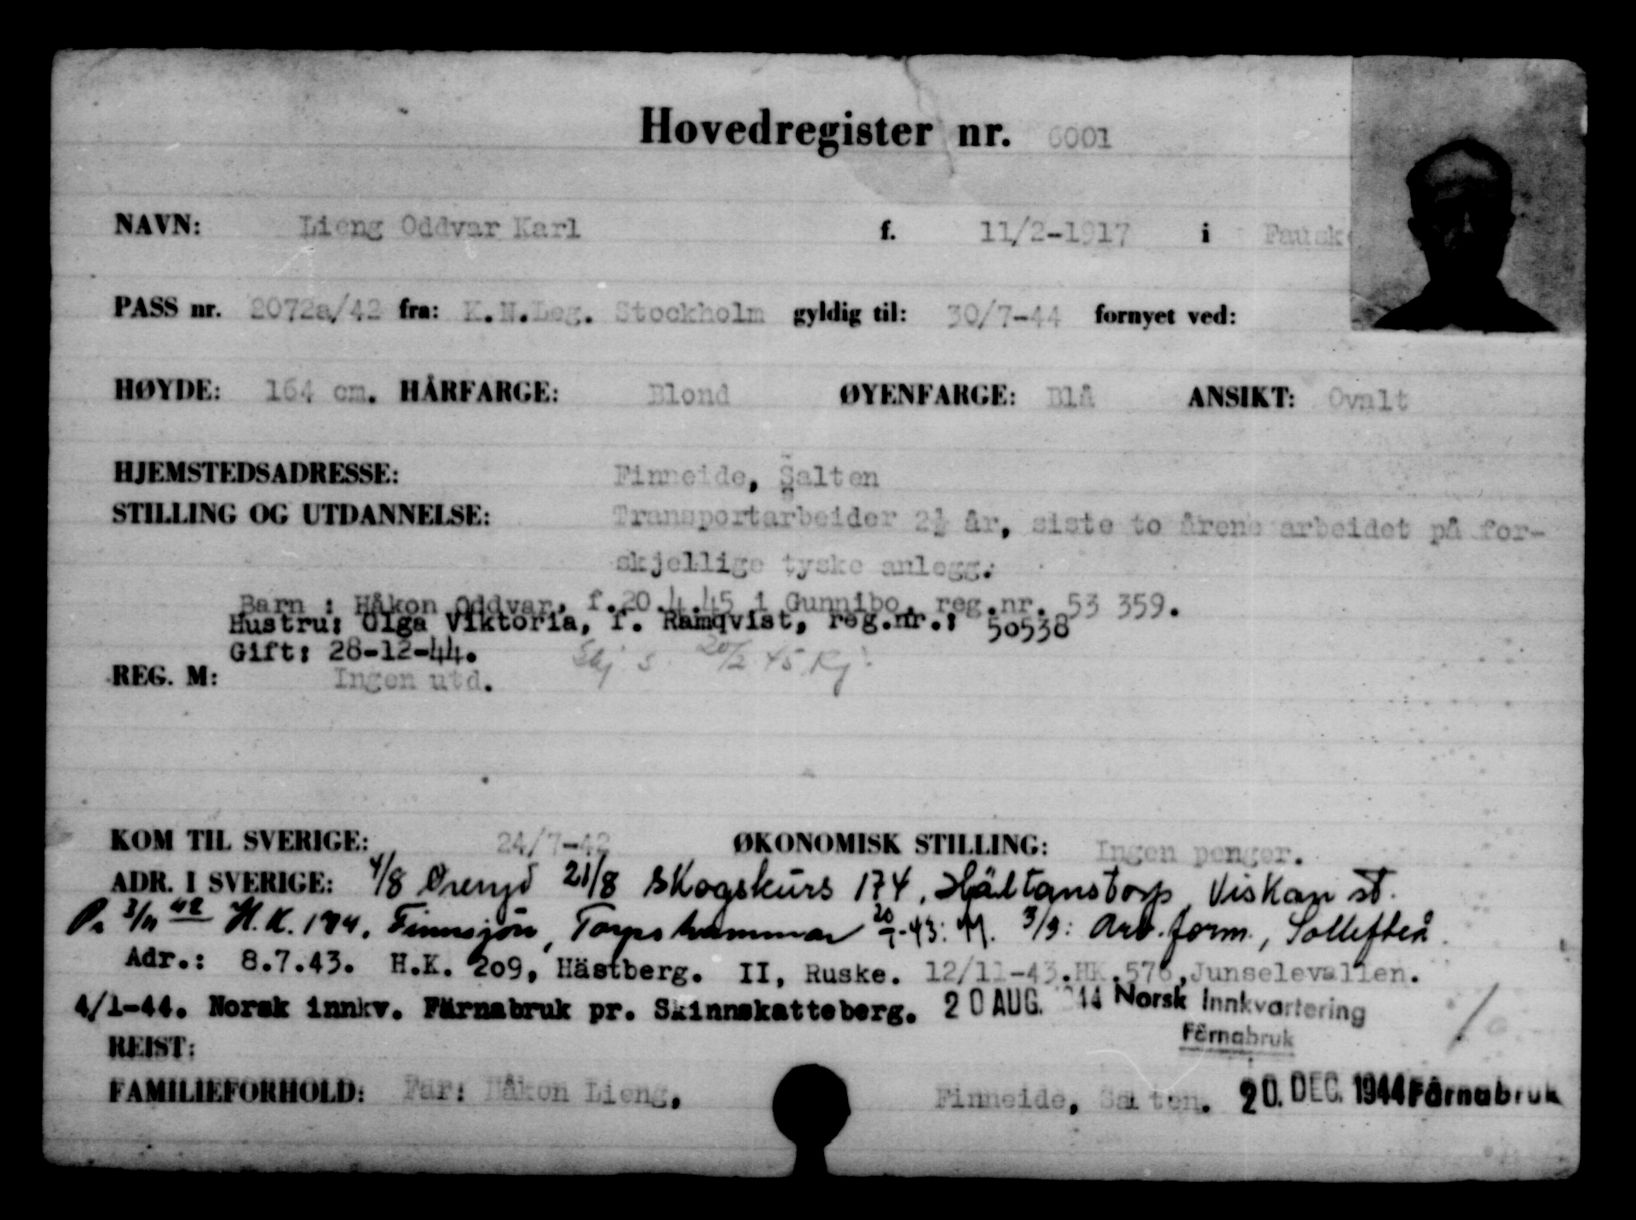 Hovedregister nr. 6001
NAVN: Lieng Oddvar Karl f. 11/2-1917 i Fauske
PASS nr. 2072a/42 fra: K.N.Leg. Stockholm gyldig til: 30/7-44 fornyet ved:
HØYDE: 164 cm. HÅRFARGE: Blond ØYENFARGE: Blå ANSIKT: Ovalt
HJEMSTEDSADRESSE: Finneide, Salten
STILLING OG UTDANNELSE: Transportarbeider 2½ år, siste to årene arbeidet på for-
skjellige tyske anlegg.
Barn : Håkon Oddvar, f.20.4.45 i Gunnibo, reg.nr. 53 359.
Hustru: Olga Viktoria, f. Ramqvist, reg.nr.: 50538
Gift: 28-12-44. 20/2 45
REG. M: Ingen utd.
KOM TIL SVERIGE: 24/7-42 ØKONOMISK STILLING: Ingen penger.
ADR. I SVERIGE: 4/8 Öreryd 21/8 Skogskurs 174, Hältanstorp, Viskan st.
3/11 42 H.K. 174, Finnsjön, Torpshammar 43: 3/9: Arb.form., Sollefteå
Adr.: 8.7.43. H.K. 209, Hästberg. II, Ruske. 12/11-43.HK.576,Junselevallen.
4/1-44. Norsk innkv. Färnabruk pr. Skinnskatteberg. 20 AUG. 1944 Norsk Innkvartering
Färnabruk
REIST:
FAMILIEFORHOLD: Far: Håkon Lieng, Finneide, Salten. 20. DEC. 1944 Färnabruk